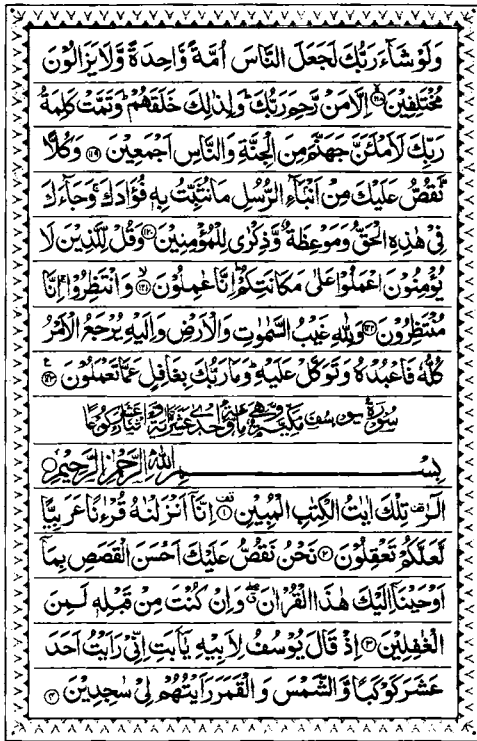 وَلَوْ شَآءَ رَبُّكَ لَجَعَلَ النَّاسَ اُمَّةً وَّاحِدَةً وَّلَا يَزَالُوْنَ
مُخْتَلِفِيْنَ ﴿۱۱۸﴾ اِلَّا مَنْ رَّحِمَ رَبُّكَ ؕ وَلِذٰلِكَ خَلَقَهُمْ ؕ وَتَمَّتْ كَلِمَةُ
رَبِّكَ لَاَمْلَئَنَّ جَهَنَّمَ مِنَ الْجِنَّةِ وَالنَّاسِ اَجْمَعِيْنَ ﴿۱۱۹﴾ وَكُلًّا
نَّقُصُّ عَلَيْكَ مِنْ اَنْۢبَآءِ الرُّسُلِ مَا نُثَبِّتُ بِهٖ فُؤَادَكَ ۚ وَجَآءَكَ
فِيْ هٰذِهِ الْحَقُّ وَمَوْعِظَةٌ وَّذِكْرٰى لِلْمُؤْمِنِيْنَ ﴿۱۲۰﴾ وَقُلْ لِّلَّذِيْنَ لَا
يُؤْمِنُوْنَ اعْمَلُوْا عَلٰى مَكَانَتِكُمْ ؕ اِنَّا عٰمِلُوْنَ ﴿۱۲۱﴾ وَانْتَظِرُوْا ۚ اِنَّا
مُنْتَظِرُوْنَ ﴿۱۲۲﴾ وَلِلّٰهِ غَيْبُ السَّمٰوٰتِ وَالْاَرْضِ وَاِلَيْهِ يُرْجَعُ الْاَمْرُ
كُلُّهٗ فَاعْبُدْهُ وَتَوَكَّلْ عَلَيْهِ ؕ وَمَا رَبُّكَ بِغَافِلٍ عَمَّا تَعْمَلُوْنَ ﴿۱۲۳﴾
سُوْرَةُ يُوْسُفَ مَكِّيَّةٌ وَّهِيَ مِائَةٌ وَّاِحْدٰى عَشَرَةَ اٰيَةً وَّاثْنَا عَشَرَ رُكُوْعًا
بِسْمِ اللّٰهِ الرَّحْمٰنِ الرَّحِيْمِ
الٓرٰ ۫ تِلْكَ اٰيٰتُ الْكِتٰبِ الْمُبِيْنِ ﴿۱﴾ اِنَّآ اَنْزَلْنٰهُ قُرْءٰنًا عَرَبِيًّا
لَّعَلَّكُمْ تَعْقِلُوْنَ ﴿۲﴾ نَحْنُ نَقُصُّ عَلَيْكَ اَحْسَنَ الْقَصَصِ بِمَآ
اَوْحَيْنَآ اِلَيْكَ هٰذَا الْقُرْاٰنَ ۖ وَاِنْ كُنْتَ مِنْ قَبْلِهٖ لَمِنَ
الْغٰفِلِيْنَ ﴿۳﴾ اِذْ قَالَ يُوْسُفُ لِاَبِيْهِ يٰٓاَبَتِ اِنِّيْ رَاَيْتُ اَحَدَ
عَشَرَ كَوْكَبًا وَّالشَّمْسَ وَالْقَمَرَ رَاَيْتُهُمْ لِيْ سٰجِدِيْنَ ﴿۴﴾